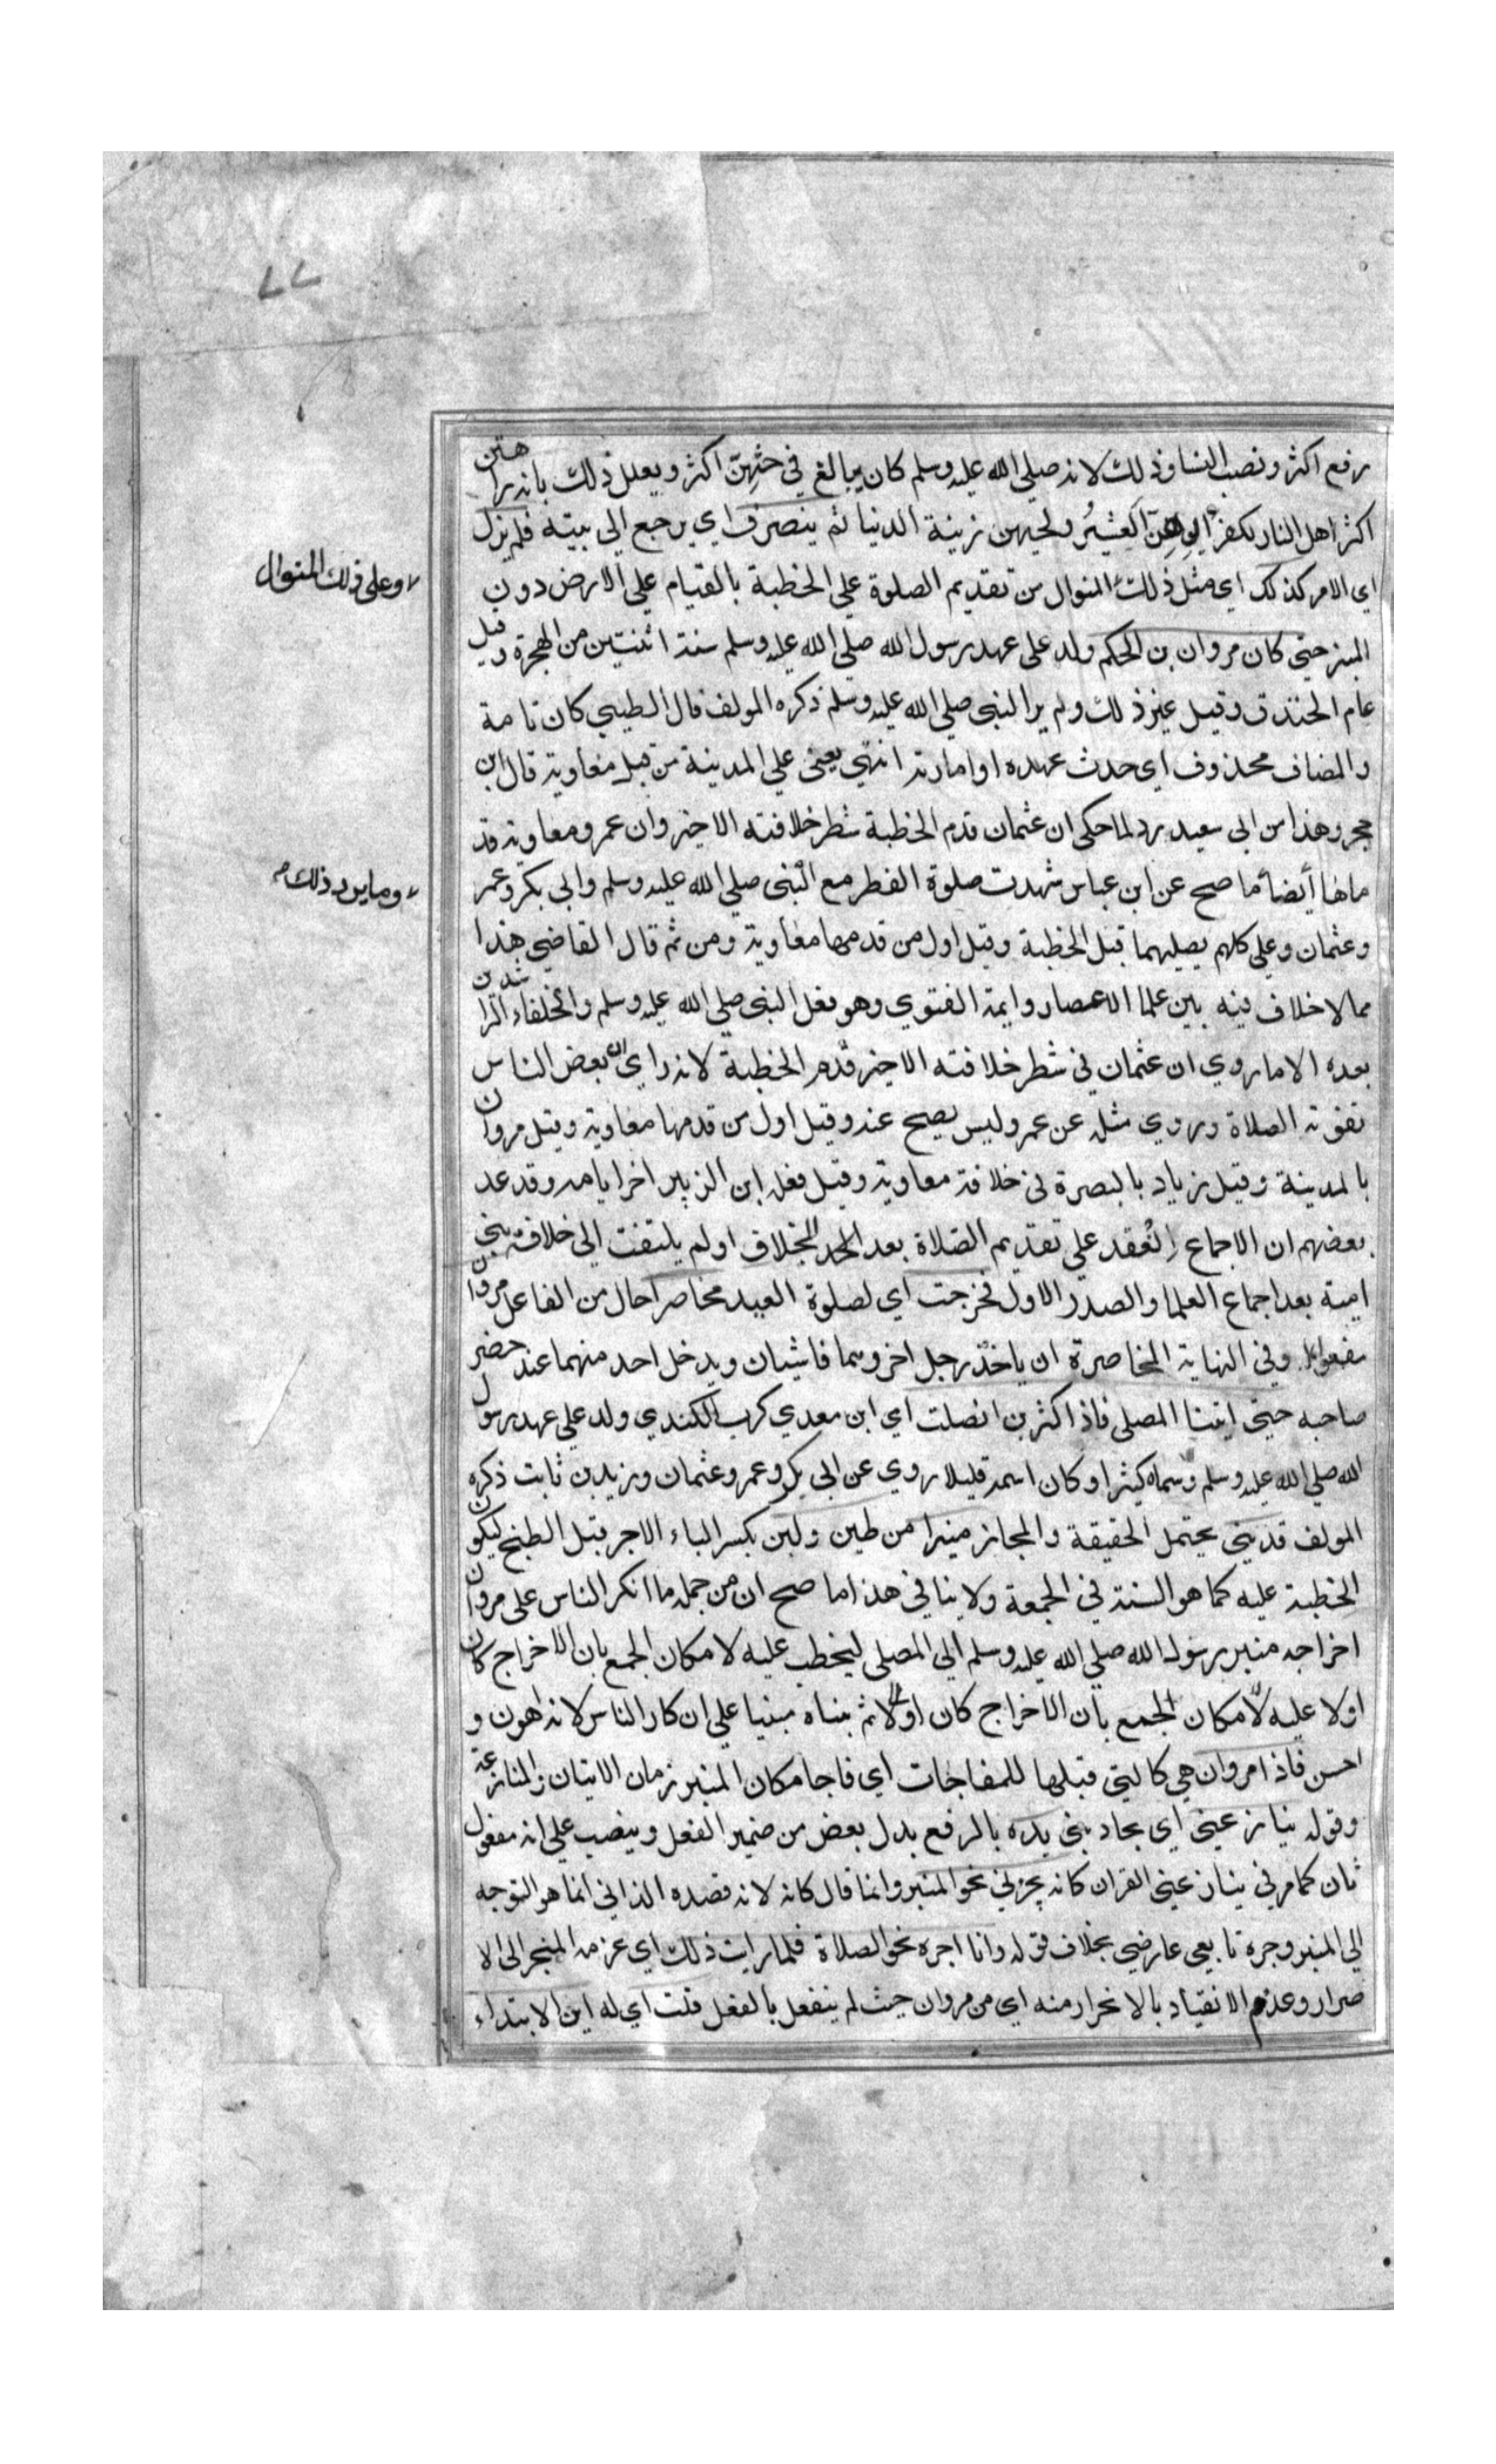 ٧٧
رفع اكثر ونصب النسا وذلك لانه صلى الله عليه وسلم كان يبالغ في حثهن اكثر ويعلل ذلك بانه راهن
اكثر اهل النار لكفرانهن العشير ولحبهن زينة الدنيا ثم ينصرف اي يرجع الي بيته فلم يزل
اي الامر كذلك اي مثل ذلك المنوال من تقديم الصلوة علي الخطبة بالقيام علي الارض دون
وعلى ذلك المنوال
المنبر حتي كان مروان بن الحكم ولد على عهد رسول الله صلى الله عليه وسلم سنة اثنتين من الهجرة وقيل
عام الخندق وقيل غير ذلك ولم ير النبي صلى الله عليه وسلم ذكره المولف قال الطيبي كان تامة
والمضاف محذوف اي حدث عهده او امارته انتهي يعني علي المدينة من قبل معاوية قال ابن
حجر وهذا من ابي سعيد يرد لما حكى ان عثمان قدم الخطبة شطر خلافته الاخير وان عمر ومعاوية قد
ماها أيضا ما صح عن ابن عباس شهدت صلوة الفطر مع النبي صلى الله عليه وسلم وابي بكر وعمر
ومما يرد ذلك
وعثمان وعلي كلهم يصليهما قبل الخطبة وقيل اول من قدمها معاوية ومن ثم قال القاضي هذا
مما لا خلاف فيه بين علما الاعصار وايمة الفتوي وهو فعل النبي صلى الله عليه وسلم والخلفاء الراشدين
بعده الا ما روي ان عثمان في شطر خلافته الاخير قدم الخطبة لانه راي ان بعض الناس
تفوته الصلاة وروي مثله عن عمر وليس يصح عنه وقيل اول من قدمها معاوية وقيل مروان
بالمدينة وقيل زياد بالبصرة في خلافة معاوية وقيل فعله ابن الزبير اخر ايامه وقد عد
بعضهم ان الاجماع انعقد علي تقديم الصلاة بعد الخلاف او لم يلتفت الي خلافة بني
امية بعد اجماع العلما والصدر الاول فخرجت اي لصلوة العيد مخاصرا حال من الفاعل مروان
مفعوله وفي النهاية المخاصرة ان ياخذ رجل اخر وهما فاشيان ويدخل احد منهما عند حضر
صاحبه حتي اتينا المصلى فاذا كثر بن الصلت اي ابن معدي كرب الكندي ولد علي عهد رسول
الله صلى الله عليه وسلم وسماه كثيرا وكان اسمه قليلا روي عن ابي بكر وعمر وعثمان وزيد بن ثابت ذكره
المولف قد بني يحتمل الحقيقة والمجاز منبرا من طين ولبن بكسر الباء الاجر قبل الطبخ ليكون
الخطبة عليه كما هو السنة في الجمعة ولا ينافي هذا ما صح ان من جملة ما انكر الناس على مروان
اخراجه منبر رسول الله صلى الله عليه وسلم الي المصلى ليخطب عليه لامكان الجمع بان الاخراج كان
اولا عليه لامكان الجمع بان الاخراج كان اولا ثم بناه مبنيا علي انكار الناس لانه اهون و
احسن فاذا مروان هي كالتي قبلها للمفاجات اي فاجا مكان المنبر زمان الاتيان والمنازعة
وقوله ينازعني اي يجاذبني يده بالرفع بدل بعض من ضمير الفعل وينصب علي انه مفعول
ثان كما مر في ينازعني القران كانه يجرني نحو المنبر وانما قال كانه لانه قصده الذاتي انما هو التوجه
الي المنبر وجره تابعي عارضي بخلاف قوله وانا اجره نحو الصلاة فلما رايت ذلك اي عزمه المنجر الي الا
صرار وعدم الانقياد بالانجرار منه اي من مروان حيث لم ينفعل بالفعل قلت اي له اين الابتداء